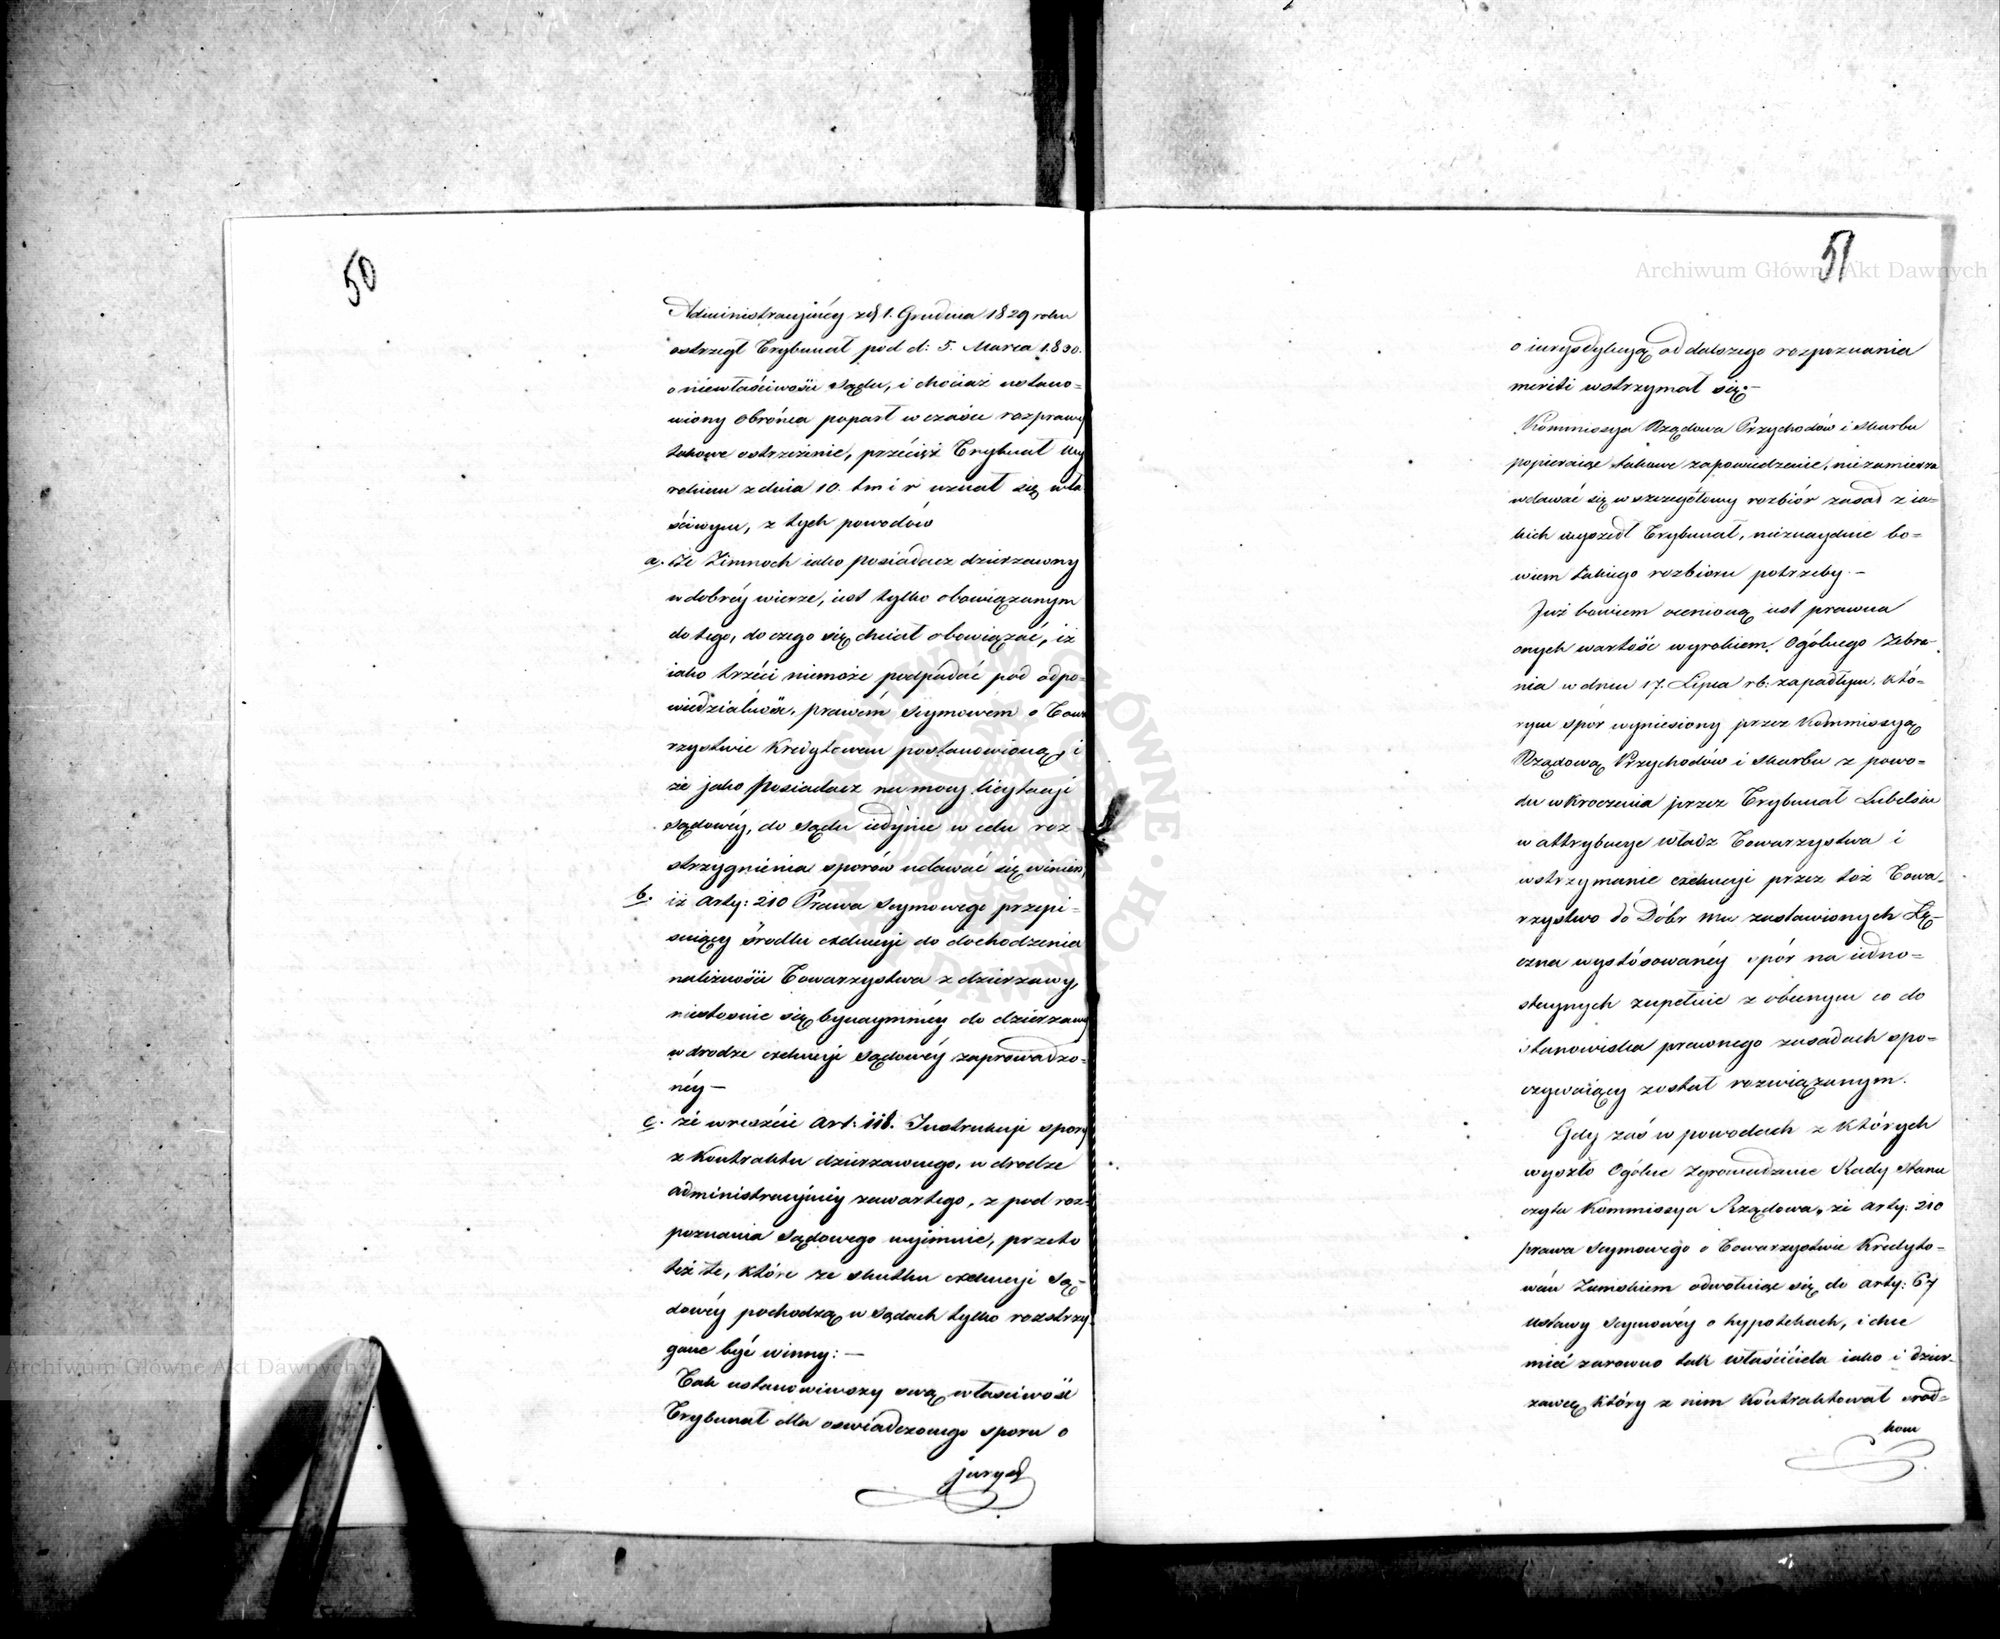 50
Administracyinéy z d. 1. Grudnia 1829 roku
ostrzegł Trybunał pod d: 5. Marca 1830.
o niewłaściwości Sądu, i chociaż ustano=
wiony Obrońca poparł w czasie rozprawy
takowe ostrzeżenie, przecież Trybunał Wy
rokiem z dnia 10. t m i r uznał się wła
ściwym, z tych powodów
a. Że Zimnoch iako posiadacz dzierzawny
w dobréy wierze, iest tylko obowiązanym
do tego, do czego się chciał obowiązać, iż
iako trzéci niemoże podpadać pod odpo=
wiedzialność, prawem Seymowem o Towa
rzystwie Kredytowem postanowioną, i
że jako Posiadacz na mocy licytacji
Sądowéy, do Sądu iedynie w celu roz
strzygnienia sporów udawać się winien,
b. iż Arty: 210 Prawa Seymowego przepi=
suiący środki exekucyi do dochodzenia
należności Towarzystwa z dzierzawy,
niestosuie się bynaymniéy do dzierzawy
w drodze exekucyi Sądowéy zaprowadzo=
néy —
c. że wreszcie Art: 118. Instrukcyi spory
z Kontraktu dzierzawnego, w drodze
administracyinéy zawartego, z pod roz=
poznania Sądowego wyimuie, przeto
też te, które ze skutku exekucyi Są=
dowéy pochodzą w Sądach tylko rozstrzy
gane być winny: —
Tak ustanowiwszy swą właściwość
Trybunał dla oświadczonego sporu o
juryzd
51
o iuryzdykcyą od dalszego rozpoznania
meriti wstrzymał się. —
Kommissya Rządowa Przychodów i Skarbu
popieraiąc takowe zapowiedzenie, niezamierza
wdawać się w szczegółowy rozbiór zasad z ia=
kich wyszedł Trybunał, nieznayduie bo=
wiem takiego rozbioru potrzeby. —
Już bowiem ocenioną iest prawna
onych wartość wyrokiem Ogólnego Zebra
nia w dniu 17. Lipca rb: zapadłym, któ=
rym spór wyniesiony przez Kommissyą
Rządową Przychodów i Skarbu z powo=
du wkroczenia przez Trybunał Lubelski
w attrybucye Władz Towarzystwa i
wstrzymanie exekucyi przez toż Towa=
rzystwo do Dóbr mu zastawionych Łę=
czna wystósowanéy spór na iedno=
staynych zupełnie z obecnym co do
stanowiska prawnego zasadach spo=
czywaiący został rozwiązanym.
Gdy zaś w powodach z których
wyszło Ogólne Zgromadzenie Rady Stanu
czyta Kommissya Rządowa, że Arty: 210
prawa Seymowego o Towarzystwie Kredyto=
wém Ziemskiem odwołuiąc się do Arty: 67
Ustawy Seymowéy o hypotekach, i chce
mieć zarówno tak właściciela iako i dzier=
zawcę który z nim Kontraktował środ=
kom
Archiwum Główne Akt Dawnych
Archiwum Główne Akt Dawnych